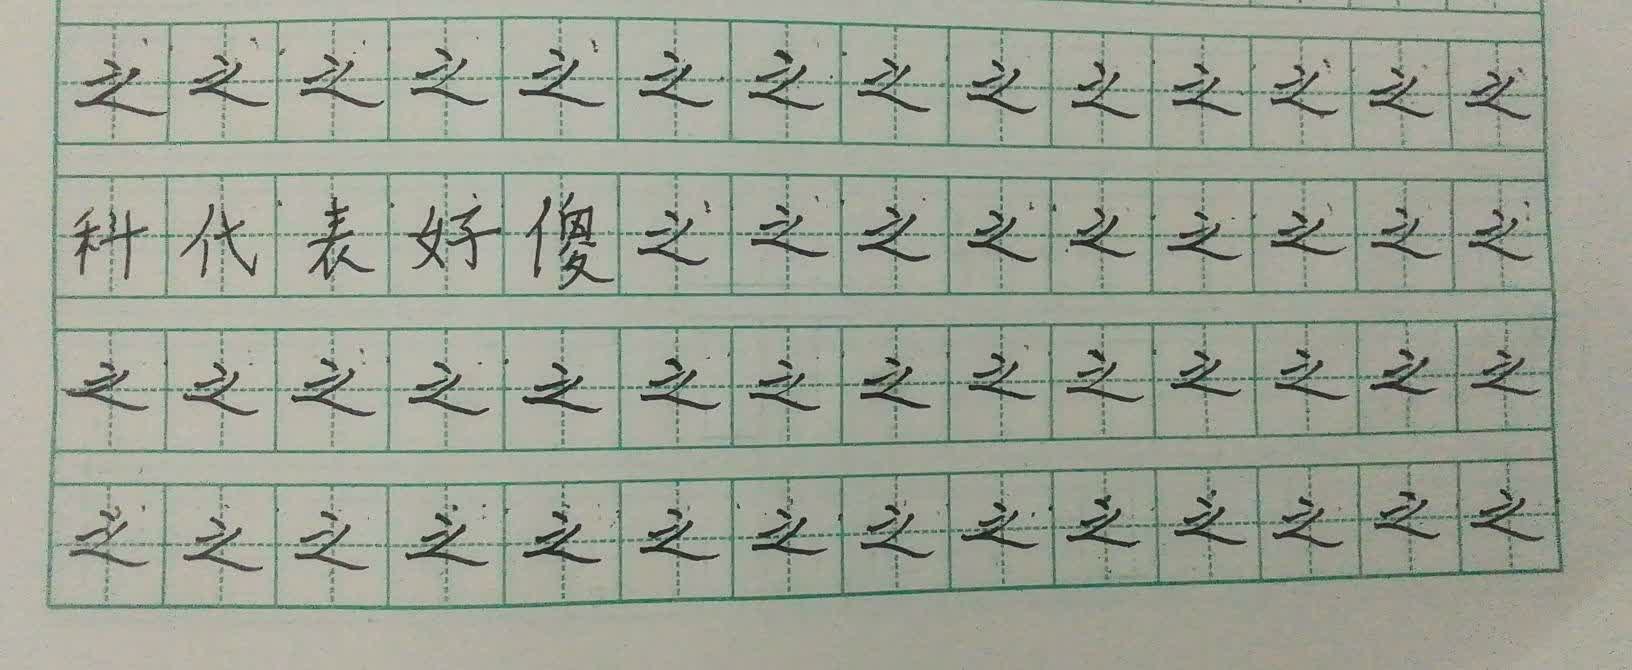 之之之之之之之之之之之之之之
科代表好傻之之之之之之之之之
之之之之之之之之之之之之之之
之之之之之之之之之之之之之之